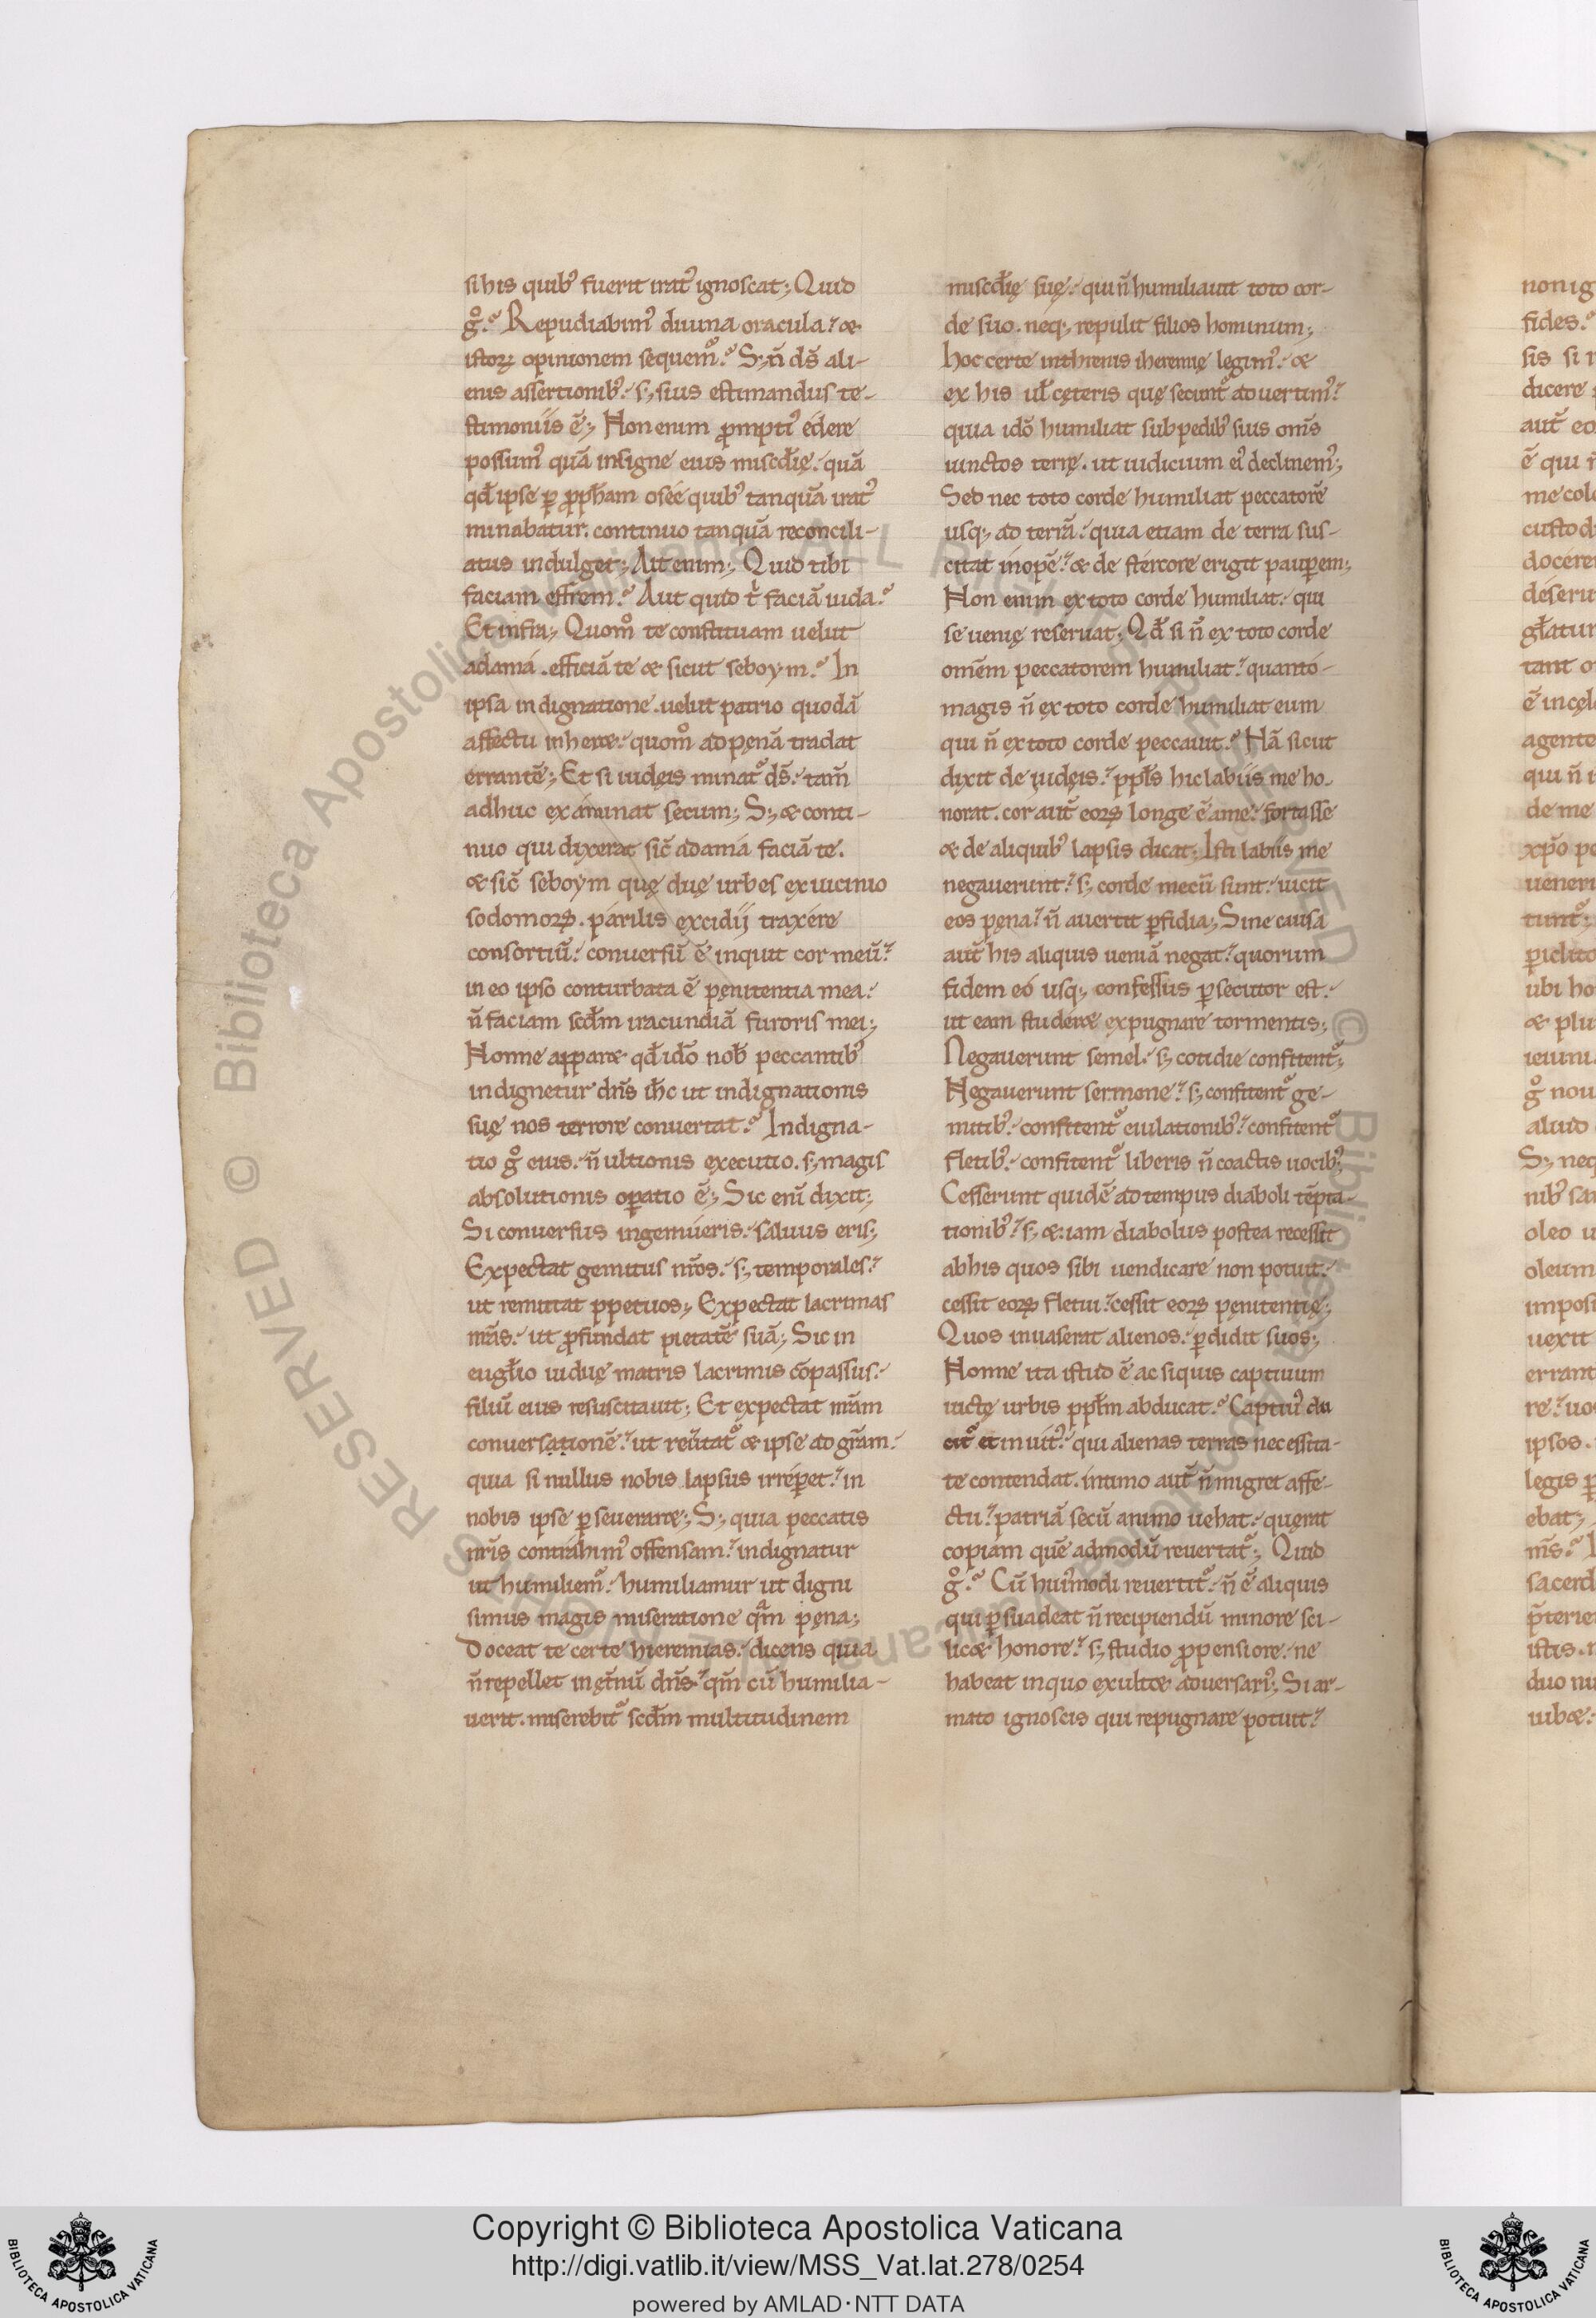 si his quib᾽ fuerit irat᾽ ignoscat; Quid
g̊? Repudiabim᾽ diuina oracula? &
istoꝝ opinionem sequem᷒? S; n̄ ds̄ ali-
enis assertionib᾽. s; suis estimandus te-
stimoniis ē; Non enim ꝓmpti᾽ edere
possum᾽ quā insigne eius miscđię. quā
qđ ipse ꝑ ꝓpħam oseę quib᾽ tanquā irat᾽
minabatur. continuo tanquā reconcili-
atus indulget; Ait enim; Quid tibi
faciam effrem? Aut quid t̄ faciā iuda?
Et infra; Quom̊ te constituam uelut
adamá. efficiā te & sicut seboym? In
ipsa indignatione. uelut patrio quodā
affectu inher&. quom̊ ad pęnā tradat
errantē; Et si iudęis minat᷒ ds̄. tam̄
adhuc examinat secum; S; & conti-
nuo qui dixerat sic̄ adamá faciā te.
& sic̄ seboym quę duę urbes ex uicinio
sodomoꝝ. parilis excidij traxére
consortiū. conuersū ē inquit cor meū?
in eo ipso conturbata ē pęnitentia mea.
n̄ faciam scđm iracundiā furoris mei;
Nonne appar& qđ idō nob̄ peccantib᾽
indignetur dn̄s iħc ut indignationis
suę nos terrore conuertat? Indigna-
tio g̊ eius. n̄ ultionis executio. s; magis
absolutionis oꝑatio ē; Sic enī dixit;
Si conuersus ingemueris. saluus eris;
Expectat gemitus nr̄os. s; temporales?
ut remittat ꝑpetuos; Expectat lacrimas
nr̄as. ut ꝓfundat pietatē suā; Sic in
eugł̄io uiduę matris lacrimis cōpassus.
filiū eius resuscitauit; Et expectat nr̄am
conuersationē? ut reūtat᷒ & ipse ad gr̄am.
quia si nullus nobis lapsus irreꝑet? in
nobis ipse ꝑseuerar&; S; quia peccatis
nr̄is contrahim᾽ offensam? indignatur
ut humiliem᷒. humiliamur ut digni
simus magis miseratione qͣm pęna;
Doceat te certe hieremias. dicens quia
n̄ repellet in ęt̄nū dn̄s? qm̄ cū humilia-
uerit. miserebit᷒ scđm multitudinem
miscđię suę. qui n̄ humiliauit toto cor-
de suo. neq; repulit filios hominum;
hoc certe in threnis iheremię legim᾽. &
ex his uł cęteris quę secunt᷒ aduertim᾽?
quia idō humiliat sub pedib᾽ suis om̄s
uinctos terrę. ut iudicium ei᾽ declinem᾽;
Sed nec toto corde humiliat peccatorē
usq; ad terrā. quia etiam de terra sus-
citat inopē? & de stercore erigit pauꝑem;
Non enim ex toto corde humiliat. qui
se uenię reseruat; Qđ si n̄ ex toto corde
omēm peccatorem humiliat? quantó-
magis n̄ ex toto corde humiliat eum
qui n̄ ex toto corde peccauit? Nā sicut
dixit de iudęis? ppl̄s hic labiis me ho-
norat. cor aut̄ eoꝝ longe ē a me. fortasse
& de aliquib᾽ lapsis dicat; Isti labiis me
negauerunt? s; corde mecū sunt. uicit
eos pęna? n̄ auertit ꝑfidia; Sine causa
aut̄ his aliquis ueniā negat? quorum
fidem eó usq; confessus ꝑsecutor est.
ut eam studer& expugnare tormentis;
Negauerunt semel. s; cotidie confitent᷒;
Negauerunt sermone? s; confitent᷒ ge-
mitib᾽. confitent᷒ eiulationib᾽? confitent᷒
fletib᾽. confitent᷒ liberis n̄ coactis uocib᾽;
Cesserunt quidē ad tempus diaboli tēpta-
tionib᾽? s; &iam diabolus postea recessit
ab his quos sibi uendicare non potuit.
cessit eoꝝ fletui? cessit eoꝝ pęnitentię;
Quos inuaserat alienos. ꝑdidit suos;
Nonne ita istud ē ac siquis captiuum
uictę urbis ppłm abducat? Captiu᾽ du
cit᷒ et inuit᾽. qui alienas terras necessita-
te contendat. intimo aut̄ n̄ migret affe-
ctu? patriā secū animo uehat. quęrat
copiam quē admodū reuertat᷒; Quid
g̊? Cū hui᾽modi reuertit᷒. n̄ ē aliquis
qui ꝑsuadeat n̄ recipiendū minore sci-
lic& honore? s; studio ꝓpensiore. ne
habeat in quo exult& aduersari᾽; Si ar-
mato ignoscis qui repugnare potuit?
Copyright © Biblioteca Apostolica Vaticana
http://digi.vatlib.it/view/MSS_Vat.lat.278/0254
powered by AMLAD·NTT DATA